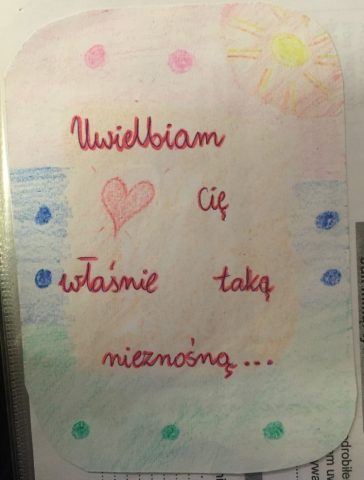 Uwielbiam
Cię
właśnie taką
nieznośną...